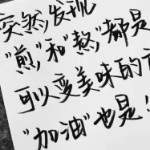 突然发现
"煎"和"熬"都是
可以变美味的方
"加油"也是！